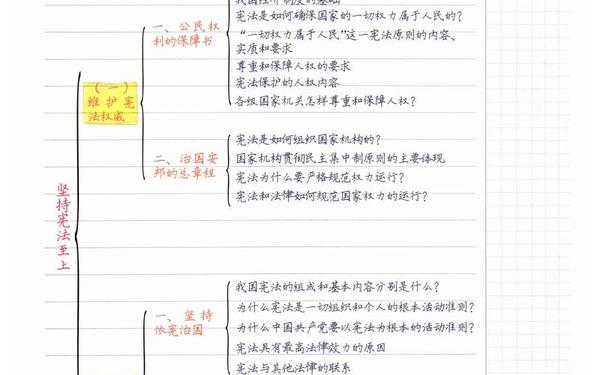 我国经济制度的基础
宪法是如何确保国家的一切权力属于人民的?
一、公民权
利的保障书
“一切权力属于人民”这一宪法原则的内容、
实质和要求
尊重和保障人权的要求
宪法保护的人权内容
各级国家机关怎样尊重和保障人权?
(一)
维护宪
法权威
宪法是如何组织国家机构的?
二、治国安
邦的总章程
国家机构贯彻民主集中制原则的主要体现
宪法为什么要严格规范权力运行?
宪法和法律如何规范国家权力的运行?
坚持宪法至上
我国宪法的组成和基本内容分别是什么?
一、坚持
依宪治国
为什么宪法是一切组织和个人的根本活动准则?
为什么中国共产党要以宪法为根本的活动准则?
宪法具有最高法律效力的原因
宪法与其他法律的联系